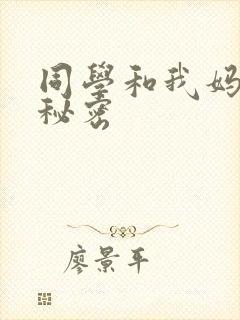 同學和我妈
秘密
廖景平